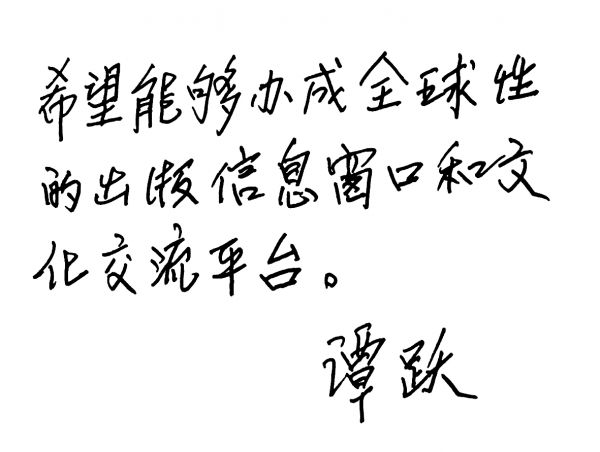 希望能够办成全球性
的出版信息窗口和文
化交流平台。
谭跃